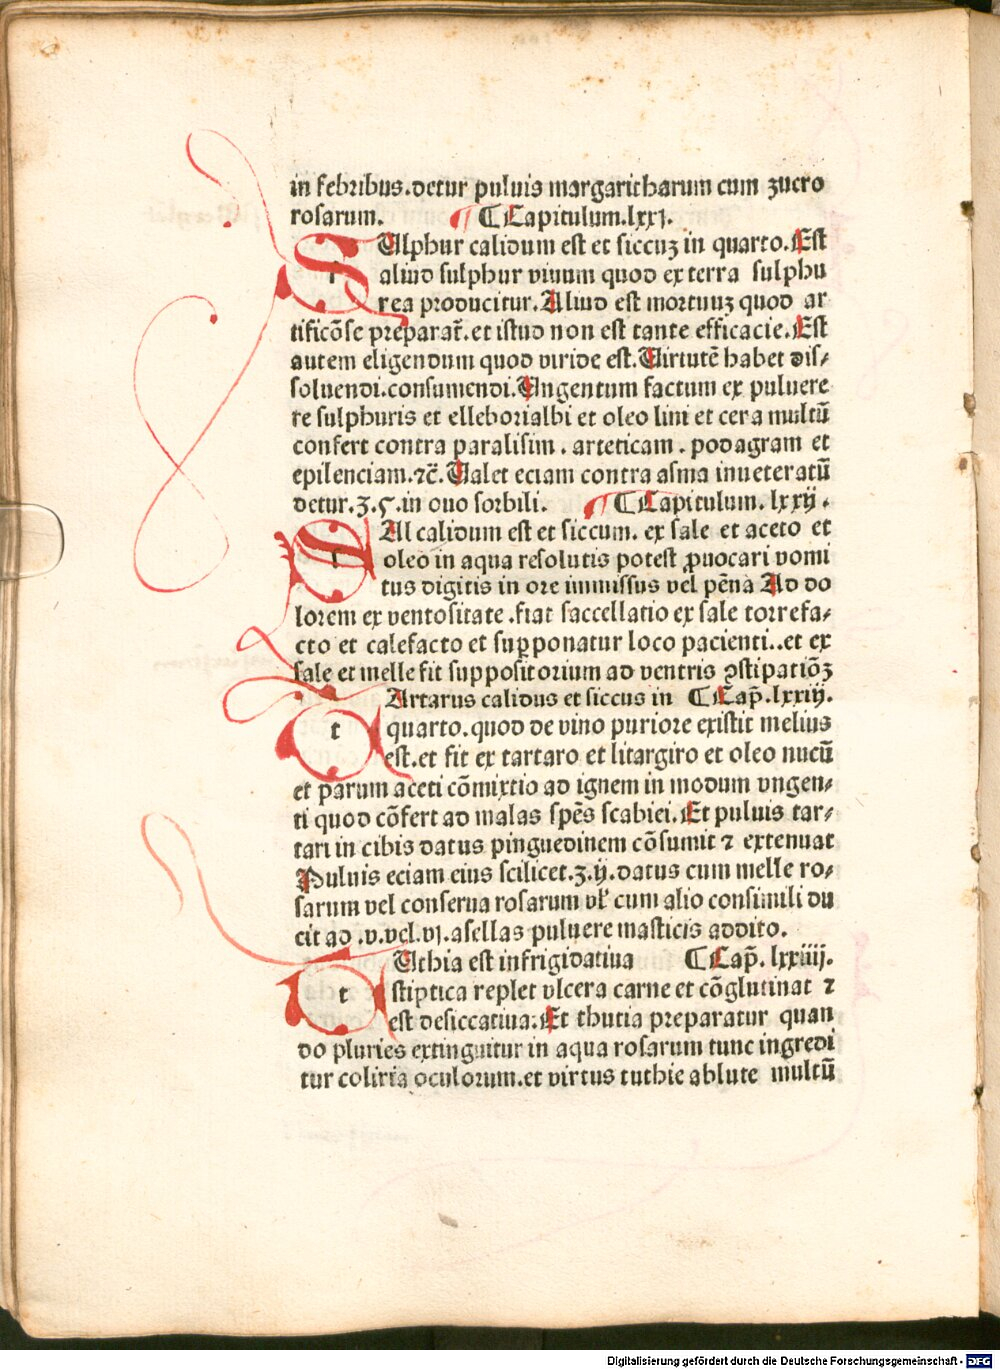 in febribus.detur puluis margaritharum cum zucro
rosarum. ¶ Capitulum.lxxj.
SUlphur calidum est et siccuʒ in quarto. Est
aliud sulphur viuum quod ex terra sulphu
rea producitur. Aliud est mortuuʒ quod ar
tificōse preparat̄. et istud non est tante efficacie. Est
autem eligendum quod viride est. Virtutē habet dis⸗
soluendi.consumendi. Ungentum factum ex puluere
re sulphuris et elleborialbi et oleo lini et cera multū
confert contra paralisim. arteticam. podagram et
epilenciam.⁊c̄. Valet eciam contra asma inueteratū
detur.ʒ.5.in ouo sorbili. ¶ Capitulum. lxxij.
SAl calidum est et siccum. ex sale et aceto et
oleo in aqua resolutis potest ꝓuocari vomi
tus digitis in ore immissus vel pēna Ad do
lorem ex ventositate .fiat saccellatio ex sale torrefa⸗
cto et calefacto et supponatur loco pacienti..et ex
sale et melle fit suppositorium ad ventris ꝯstipatiōʒ
tArtarus calidus et siccus in ¶ Cap̄.lxxiij.
quarto.quod de vino puriore existit melius
est.et fit ex tartaro et litargiro et oleo nucū
et parum aceti cōmixtio ad ignem in modum vngen⸗
ti quod cōfert ad malas spēs scabiei. Et puluis tar⸗
tari in cibis datus pinguedinem cōsumit ⁊ extenuat
Puluis eciam eius scilicet.ʒ.ij.datus cum melle ro⸗
sarum vel conserua rosarum vł cum alio consimili du
cit ad .v.vel.vj.asellas puluere masticis addito.
tUthia est infrigidatiua ¶ Cap̄. lxxiiij.
stiptica replet vlcera carne et cōglutinat ⁊
est desiccatiua. Et thutia preparatur quan
do pluries extinguitur in aqua rosarum tunc ingredi
tur coliria oculorum.et virtus tuthie ablute multū
Digitalisierung gefördert durch die Deutsche Forschungsgemeinschaft - DFG